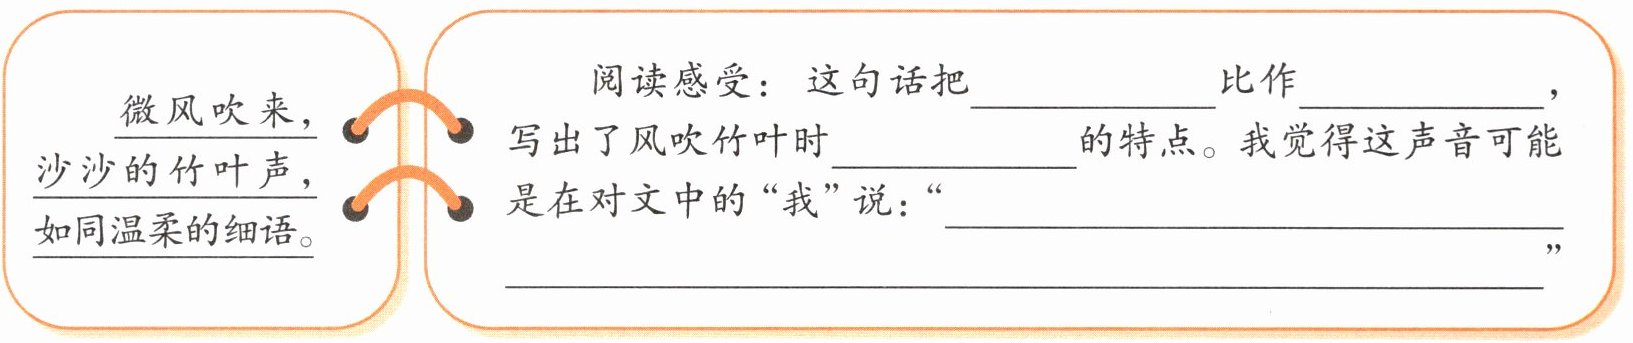 微风吹来，
沙沙的竹叶声，
如同温柔的细语。
阅读感受：这句话把____比作____，
写出了风吹竹叶时____的特点。我觉得这声音可能
是在对文中的“我”说：“____
____”